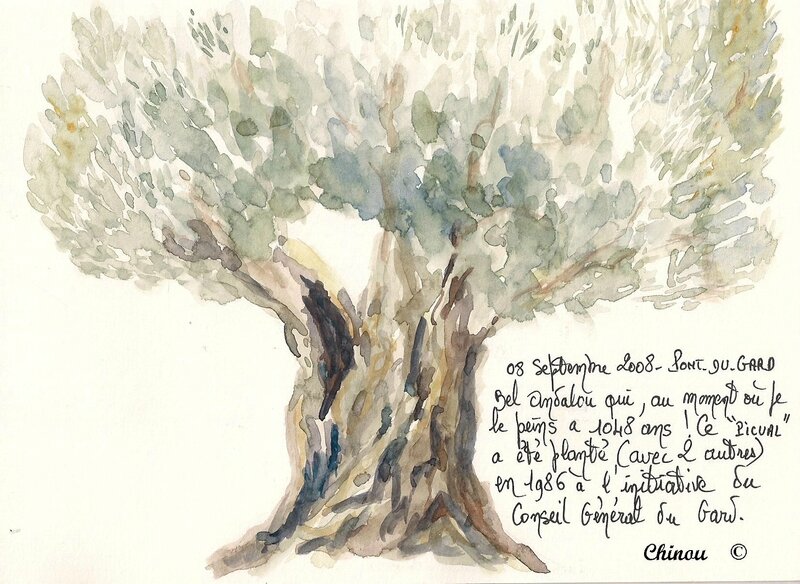 08 Septembre 2008 - PONT-DU-GARD
Bel andalou qui, au moment où je
le peins a 1048 ans ! Ce "PICUAL"
a été planté (avec 2 autres)
en 1986 à l'initiative du
Conseil Général du Gard.
Chinou ©